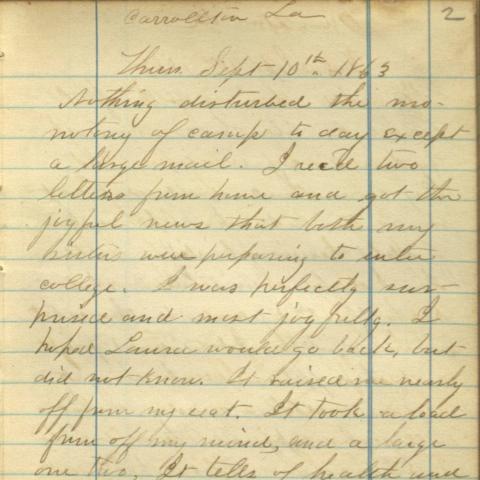 Carrollton La
2
Thurs Sept 10th. 1863
Nothing disturbed the mo-
notony of camp to day except
a large mail. I rec'd two
letters from home and got the
joyful news that both my
sisters were preparing to enter
college. I was perfectly sur-
prised and most joyfully. I
hoped Laura would go back, but
did not know. It raised me nearly
off from my seat. It took a load
from off my mind, and a large
one too, It tells of health and